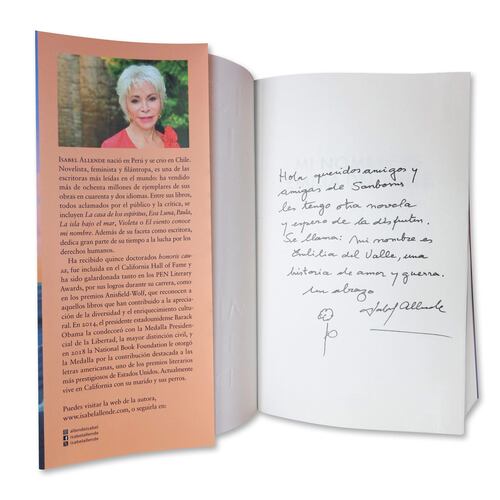 ISABEL ALLENDE nació en Perú y se crio en Chile.
Novelista, feminista y filántropa, es una de las
escritoras más leídas en el mundo: ha vendido
más de ochenta millones de ejemplares de sus
obras en cuarenta y dos idiomas. Entre sus libros,
todos aclamados por el público y la crítica, se
incluyen La casa de los espíritus, Eva Luna, Paula,
La isla bajo el mar, Violeta o El viento conoce
mi nombre. Además de su faceta como escritora,
dedica gran parte de su tiempo a la lucha por los
derechos humanos.
Ha recibido quince doctorados honoris cau-
sa, fue incluida en el California Hall of Fame y
ha sido galardonada tanto en los PEN Literary
Awards, por sus logros durante su carrera, como
en los premios Anisfield-Wolf, que reconocen a
aquellos libros que han contribuido a la aprecia-
ción de la diversidad y el enriquecimiento cultu-
ral. En 2014, el presidente estadounidense Barack
Obama la condecoró con la Medalla Presiden-
cial de la Libertad, la mayor distinción civil, y
en 2018 la National Book Foundation le otorgó
la Medalla por la contribución destacada a las
letras americanas, uno de los premios literarios
más prestigiosos de Estados Unidos. Actualmente
vive en California con su marido y sus perros.
Puedes visitar la web de la autora,
www.isabelallende.com, o seguirla en:
allendeisabel
isabelallende
isabelallende
Hola queridos amigos y
amigas de Sanborns
les tengo otra novela
y espero de la disfruten.
Se llama: Mi nombre es
Emilia del Valle, una
historia de amor y guerra.
Un abrazo
Isabel Allende